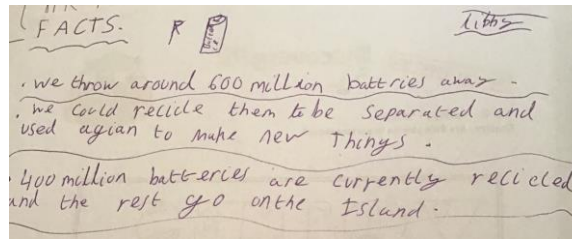 FACTS.
libby
. we throw around 600 million battries away .
. we could recicle them to be separated and
used agian to make new Things .
. 400 million batteries are currently recicled
and the rest go on the Island .